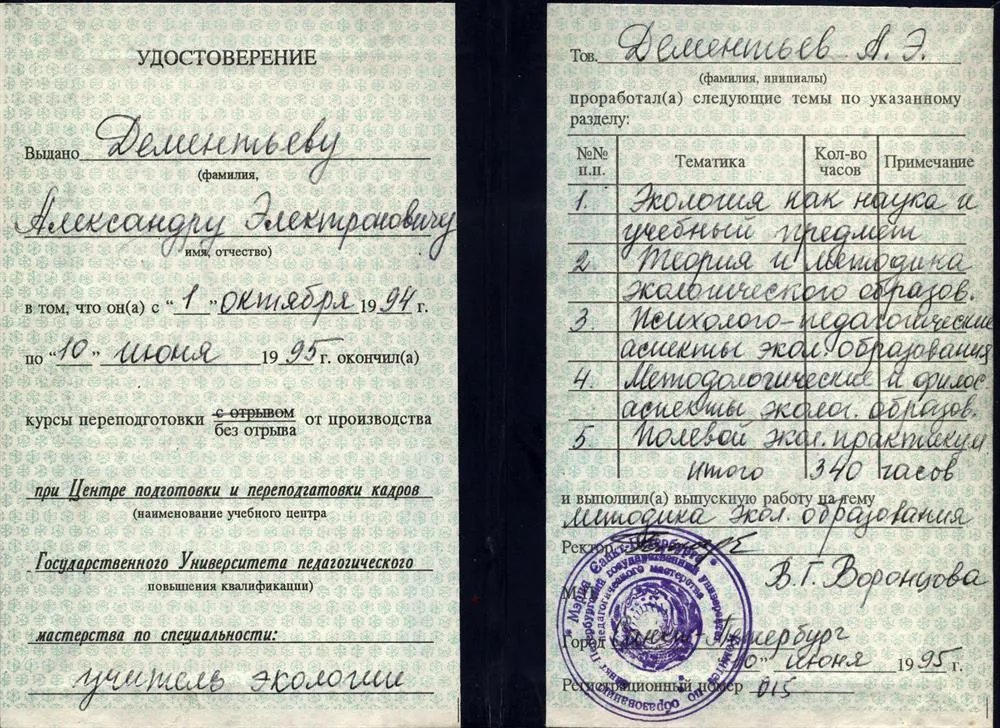 УДОСТОВЕРЕНИЕ
Выдано Дементьеву
(фамилия,
Александру Электроновичу
имя, отчество)
в том, что он(а) с "1" октября 1994 г.
по "10" июня 1995 г. окончил(а)
курсы переподготовки с отрывом от производства
без отрыва
при Центре подготовки и переподгатовки кадров
(наименование учебного центра
Государственного Университета педагогического
повышения квалификации)
мастерства по специальности:
учитель экологии
Тов. Дементьев А. Э.
(фамилия, инициалы)
проработал(а) следующие темы по указанному
разделу:
№№ п.п. Тематика Кол-во часов Примечание
1. Экология как наука и
учебный предмет
2. Теория и методика
экологического образов.
3. Психолого-педагогические
аспекты экол. образования
4. Методологические и филос
аспекты эколог. образов.
5. Полевой экол. практикум
итого 340 часов
и выполнил(а) выпускную работу на тему
методика экол. образования
Ректор
В. Г. Воронцова
М.П.
Город Санкт-Петербург
"10" июня 1995 г.
Регистрационный номер 015